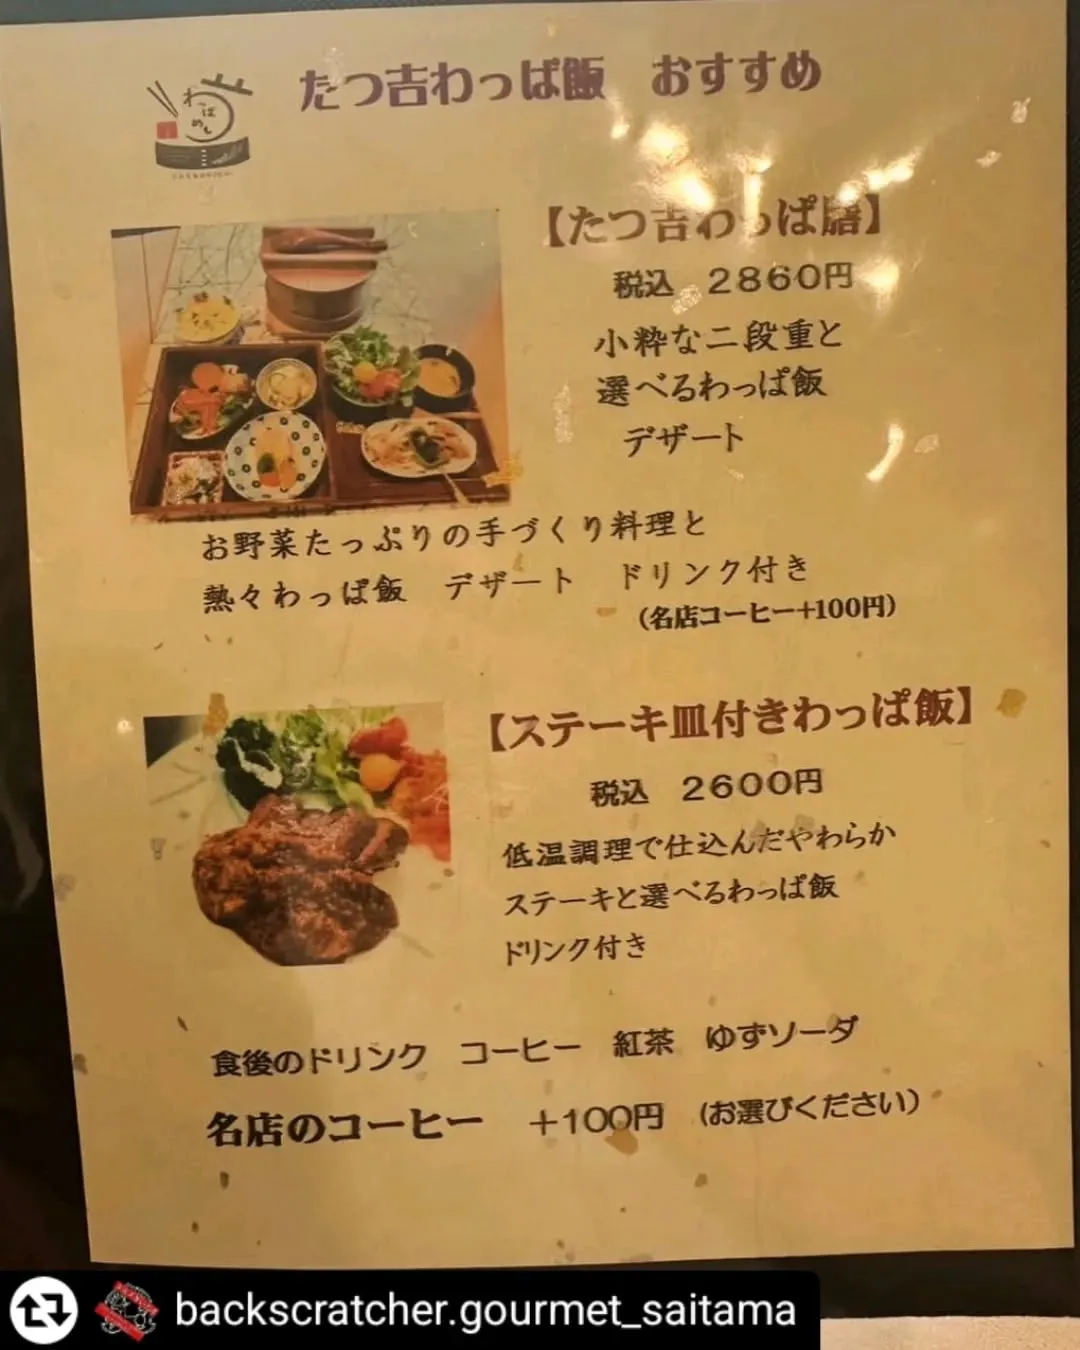 わっぱめし
たつ吉わっぱ飯 おすすめ
【たつ吉わっぱ膳】
税込 2860円
小粋な二段重と
選べるわっぱ飯
デザート
お野菜たっぷりの手づくり料理と
熱々わっぱ飯 デザート ドリンク付き
(名店コーヒー+100円)
【ステーキ皿付きわっぱ飯】
税込 2600円
低温調理で仕込んだやわらか
ステーキと選べるわっぱ飯
ドリンク付き
食後のドリンク コーヒー 紅茶 ゆずソーダ
名店のコーヒー +100円 (お選びください)
backscratcher.gourmet_saitama